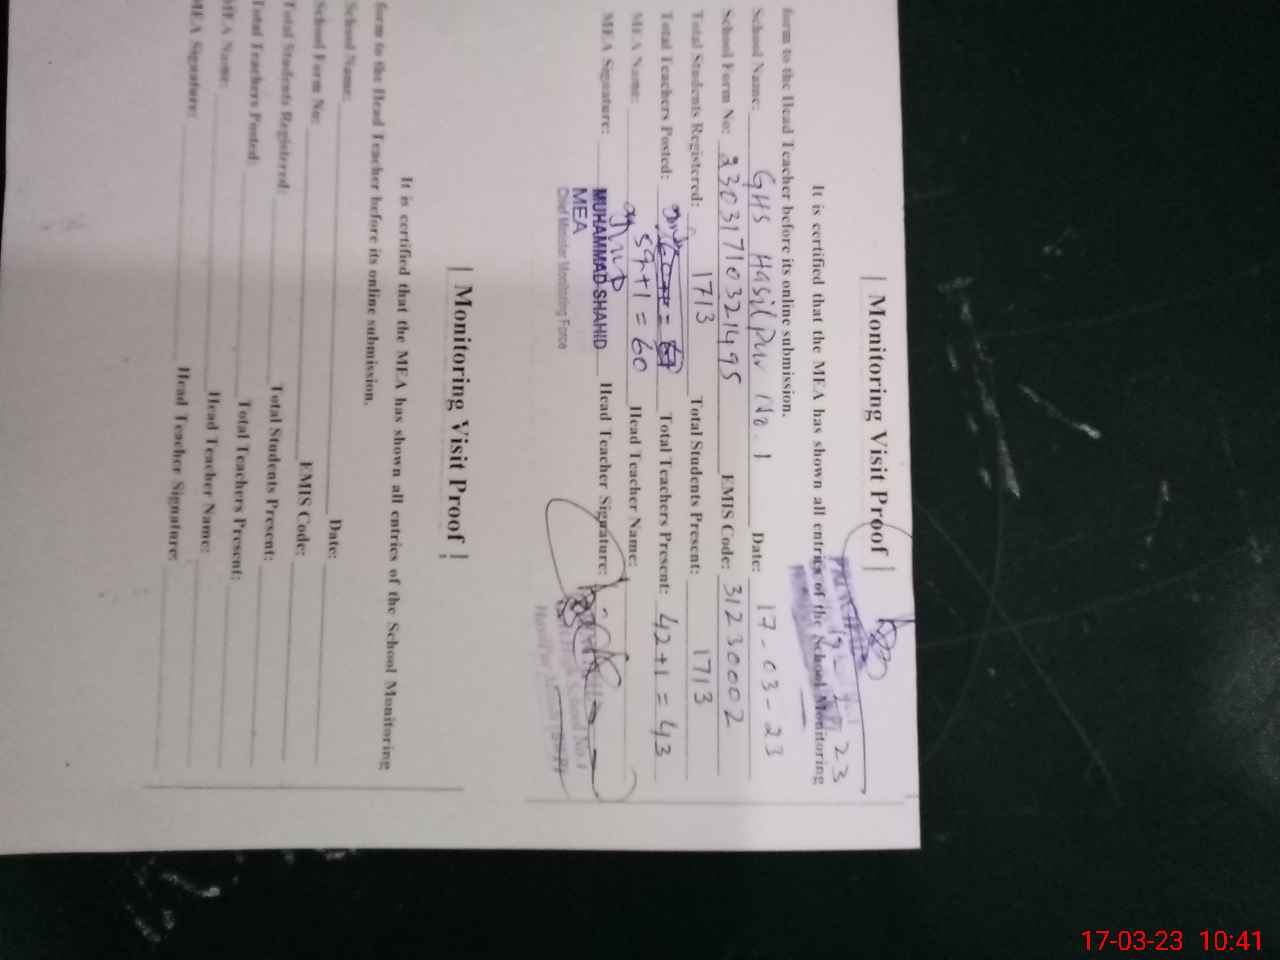 | Monitoring Visit Proof |
It is certified that the MEA has shown all entries of the School Monitoring
form to the Head Teacher before its online submission.
School Name: GHS Hasilpur No. 1 Date: 17-03-23
School Form No: 23031710321495 EMIS Code: 31230002
Total Students Registered: 1713 Total Students Present: 1713
Total Teachers Posted: 59+1=60 Total Teachers Present: 42+1=43
MEA Name: Head Teacher Name:
MEA Signature: MUHAMMAD SHAHID Head Teacher Signature:
MEA
Chief Minister Monitoring Force
| Monitoring Visit Proof |
It is certified that the MEA has shown all entries of the School Monitoring
form to the Head Teacher before its online submission.
School Name: Date:
School Form No: EMIS Code:
Total Students Registered: Total Students Present:
Total Teachers Posted: Total Teachers Present:
MEA Name: Head Teacher Name:
MEA Signature: Head Teacher Signature:
17-03-23 10:41